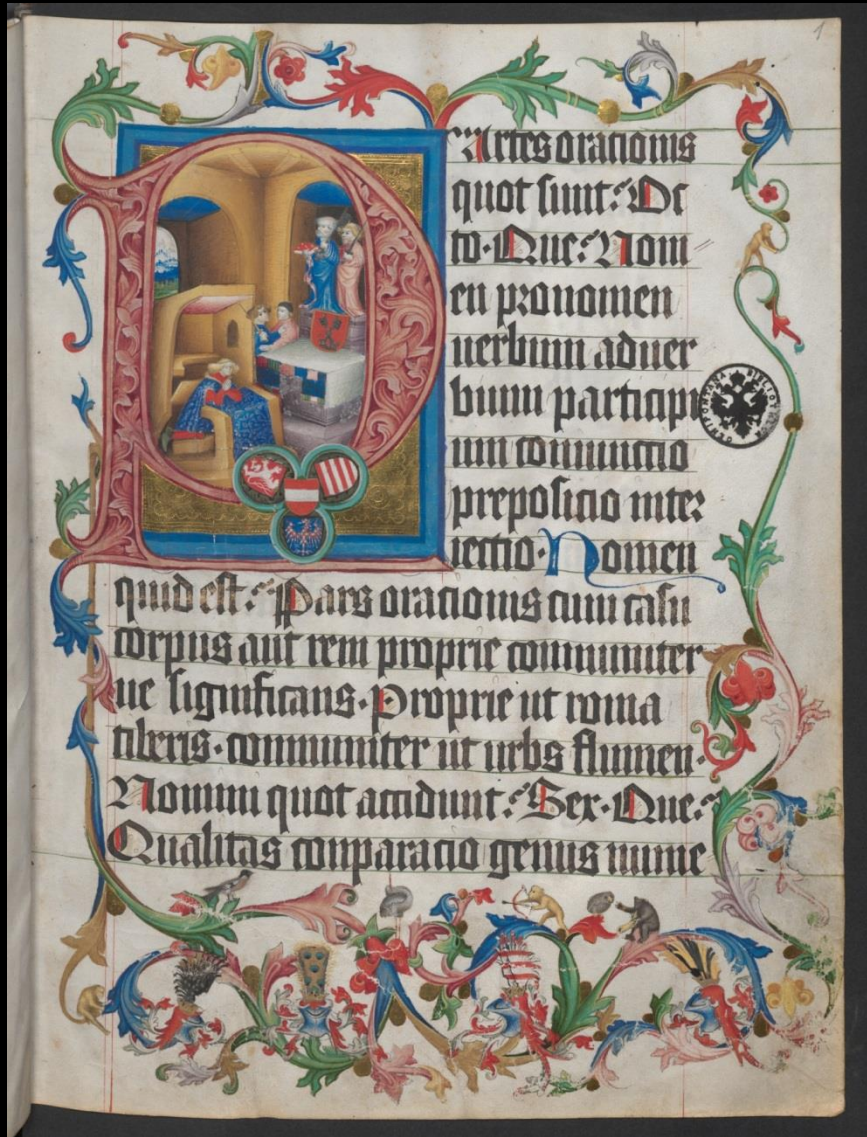 1
PArtes orationis
quot sunt? Oc
to. Que? Nom
en pronomen
uerbum aduer
bium participi
um coniunctio
prepositio inter
iectio. Nomen
quid est? Pars orationis cum casu
corpus aut rem proprie communiter
ue significans. Proprie ut roma
tiberis. communiter ut urbs flumen.
Nomini quot accidunt? Sex. Que?
Qualitas conparacio genus nume